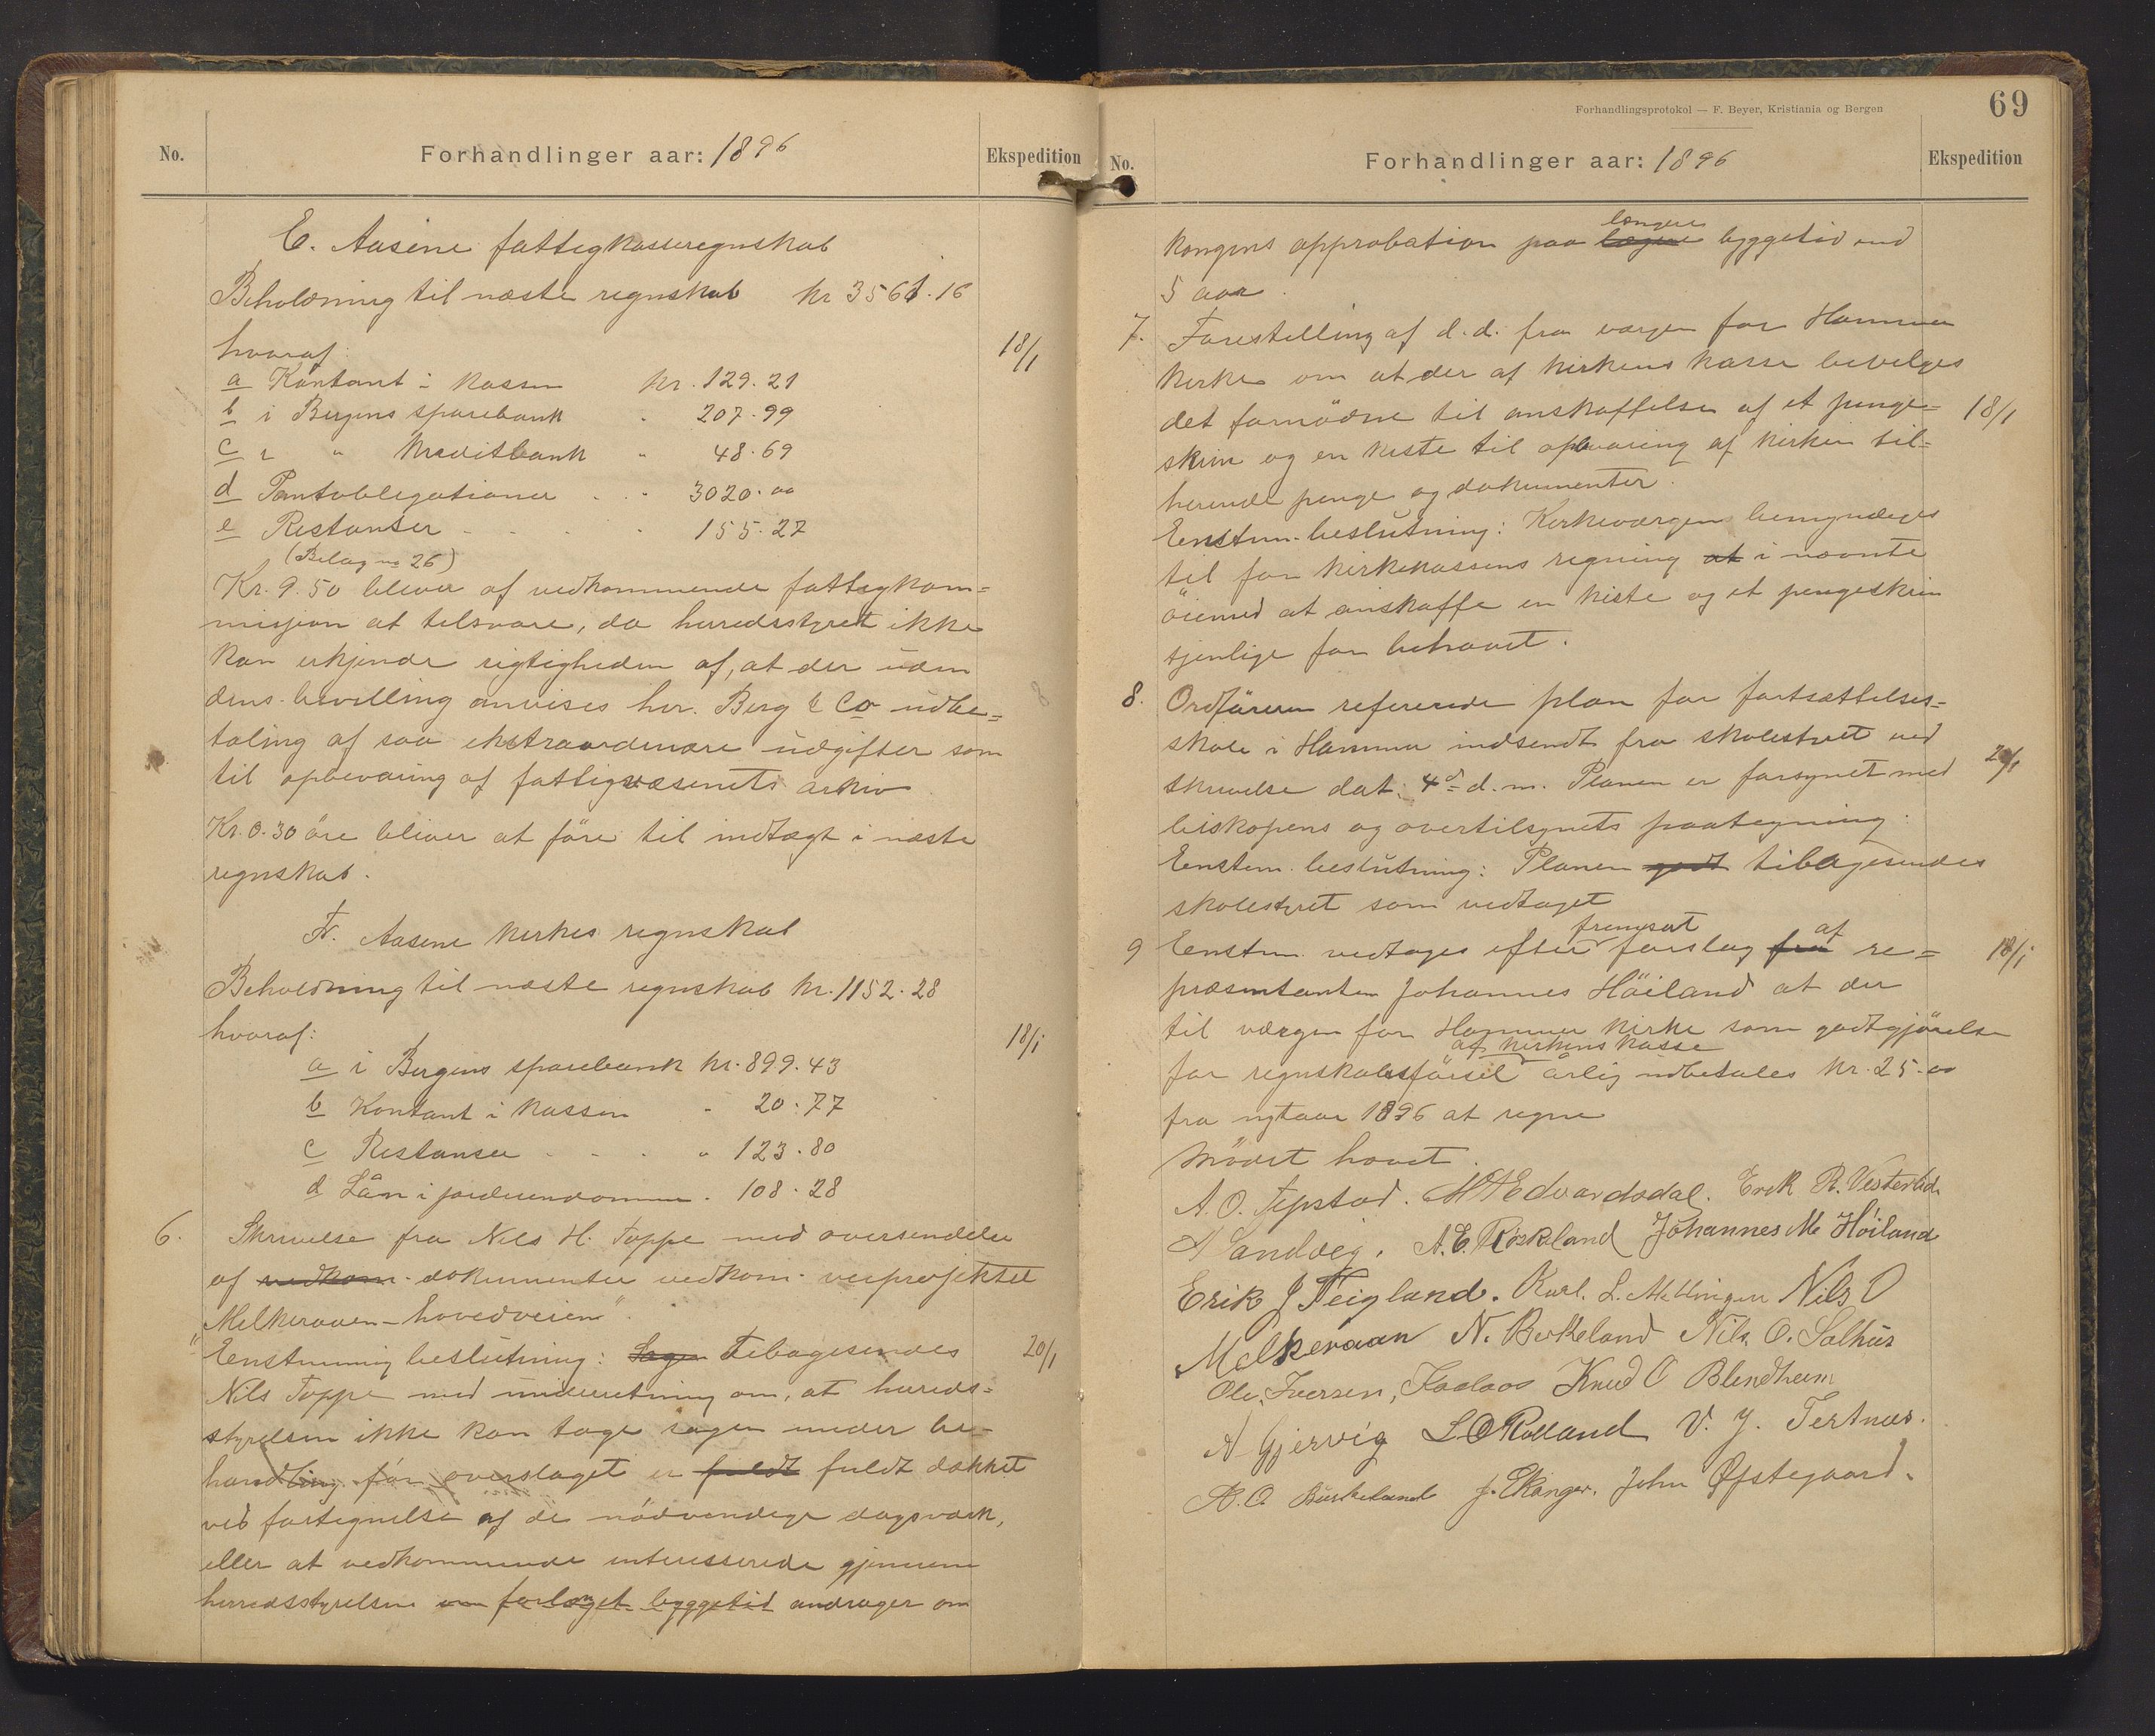 No.
Forhandlinger aar: 1896
Ekspedition
E. Aasene fattigkasseregnskab
Beholdning til næste regnskab kr 3561.16
hvoraf:
18/1
a Kontant i kassen kr. 129.21
b i Bergens sparebank " 207.99
c " " Kreditbank " 48.69
d Pantobligationer . . " 3020.00
e Restanser . . . . " 155.27
(Bilag no 26)
Kr. 9.50 bliver af vedkommende fattigkom=
misjon at tilsvare, da herredsstyret ikke
kan erkjende rigtigheden af, at der uden
dens bevilling anvises hr. Berg & Co udbe=
taling af saa ekstraordinære udgifter som
til opbevaring af fattigvæsenets arkiv
Kr. 0.30 øre bliver at føre til indtægt i næste
regnskab.
F. Aasene kirkes regnskab
Beholdning til næste regnskab kr. 1152.28
hvoraf:
18/1
a i Bergens sparebank kr. 899.43
b Kontant i kassen " 20.77
c Restanser . . . " 123.80
d Lån i jordeiendomme . 108.28
6. Skrivelse fra Nils H. Toppe med oversendelse
af vedkom. dokumenter vedkom. veiprojektet
"Melkeraaen - hovedveien".
Enstemmig beslutning: Sagen Tilbagesendes
20/1
Nils Toppe med underretning om, at herreds=
styrelsen ikke kan tage sagen under be=
handling før overslaget er fuldt fuldt dækket
ved fortegnelse af de nødvendige dagsværk,
eller at vedkommende interesserede gjennem
herredsstyrelsen om forlænget byggetid andrager om
Forhandlingsprotokol — F. Beyer, Kristiania og Bergen
69
No.
Forhandlinger aar: 1896
Ekspedition
længere
kongens approbation paa længere byggetid end
5 aar.
7. Forestilling af d.d. fra værgen for Hammer
kirke om at der af kirkens kasse bevilges
det fornødne til anskaffelse af et penge=
18/1
skrin og en kiste til opbevaring af kirken til=
hørende penge og dokumenter.
Enstem. beslutning: Kirkeværgen bemyndiges
til for kirkekassens regning at i nævnte
øiemed at anskaffe en kiste og et pengeskrin
tjenlige for behovet.
8. Ordføreren refererede plan for fortsættelses=
skole i Hammer indsendt fra skolestyret ved
20/1
skrivelse dat. 4de d.m. Planen er forsynet med
biskopens og overtilsynets paategning.
Enstem. beslutning: Planen godt tilbagesendes
skolestyret som vedtaget
fremsat af
9 Enstem. vedtages efter forslag fra re=
18/1
præsentanten Johannes Höiland at der
til værgen for Hammer kirke som godtgjørelse
af kirkens kasse
for regnskabsførsel årlig udbetales kr. 25.00
fra nytaar 1896 at regne
Mødet hævet.
A. O. Tepstad. M Edvardsdal. Erik R. Vesterlid
A Sandvig. A. E. Röskeland Johannes M Höiland
Erik J Teigland. Karl. L. Mellingen Nils O
Melkeraaen N. Birkeland Nils O. Salhus
Ole Iversen, Knud O Blindheim
A Gjervig L O Rolland V. J. Tertnes.
A. O. Birkeland J. Ekanger. John Øfstegaard.